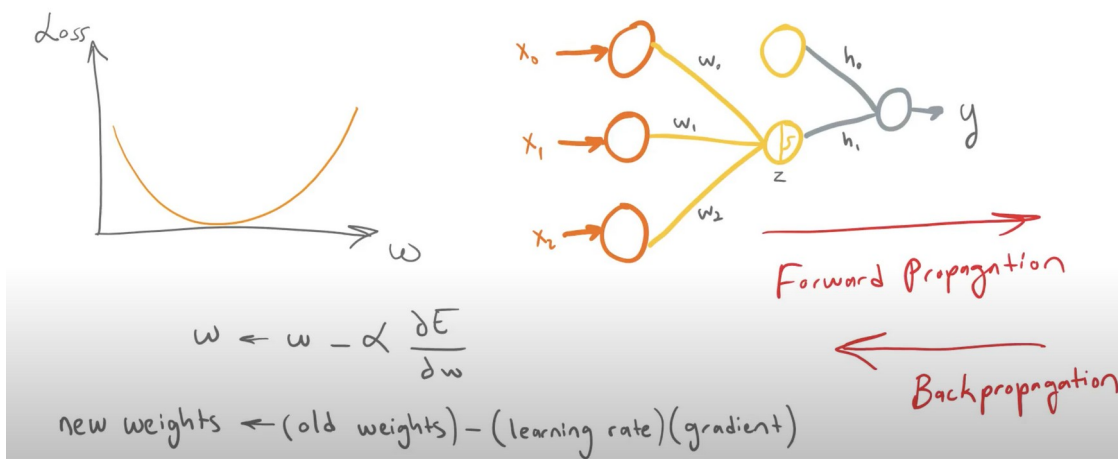 Loss
w
x₀
x₁
x₂
w₀
w₁
w₂
z
h₀
h₁
y
Forward Propagation
Backpropagation
w ← w - α ∂E/∂w
new weights ← (old weights) - (learning rate)(gradient)